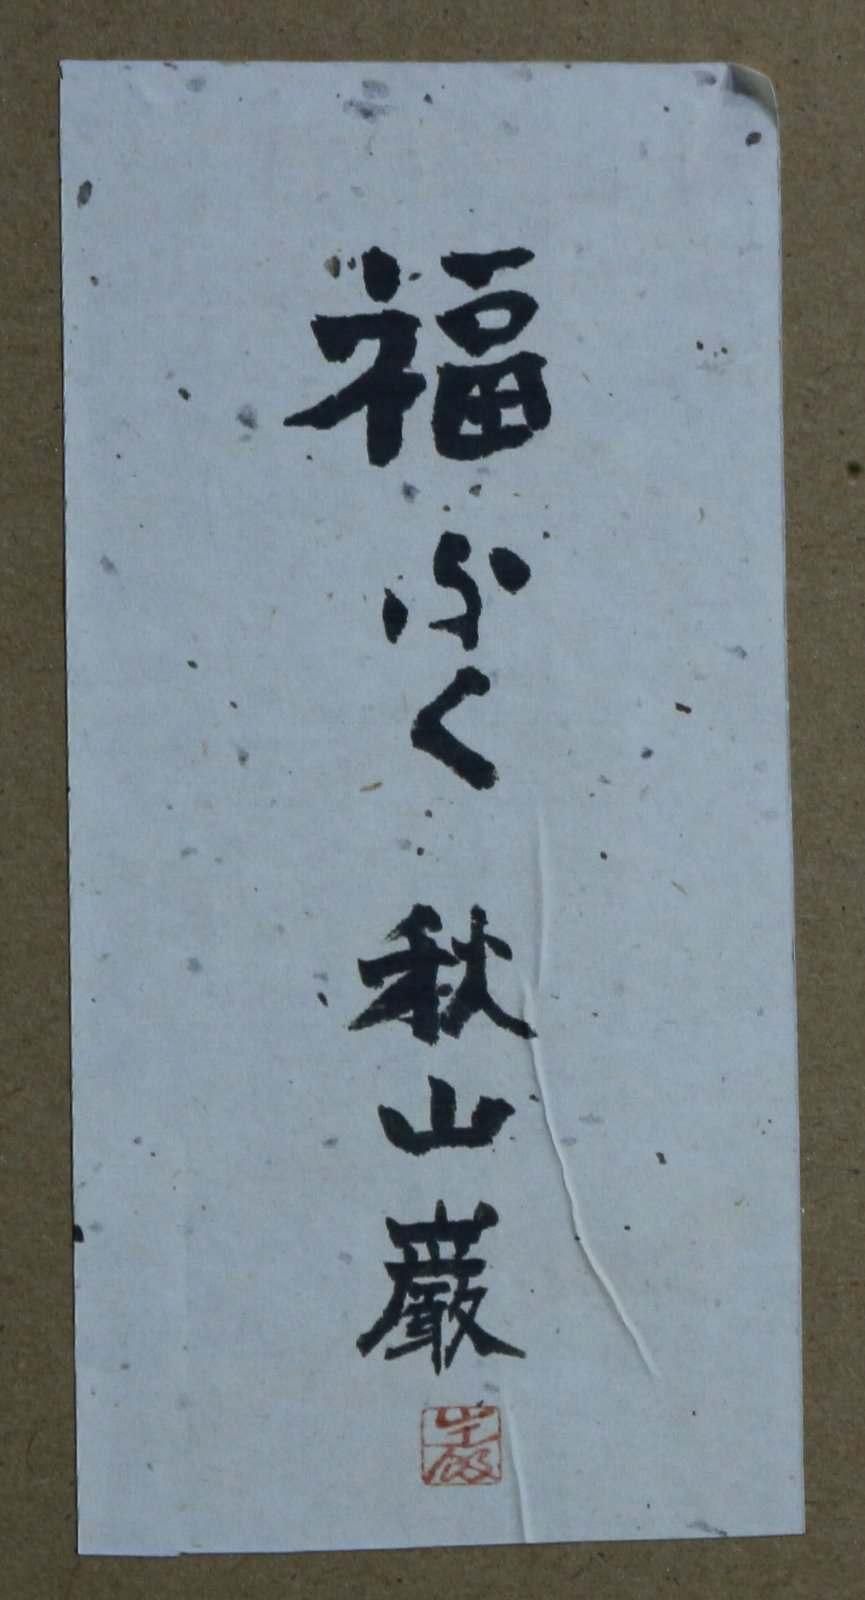 福ふく 秋山巌